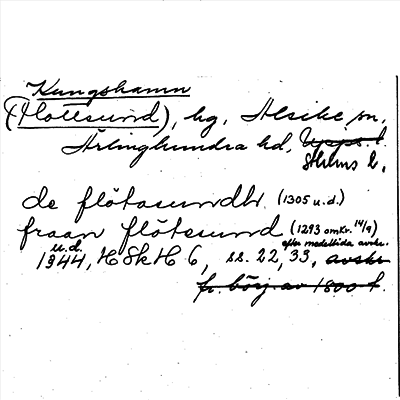 Kungshamn
(Flottsund), hg, Alsike sn,
Ärlinghundra hd, Upps. l.
Sthlms l.
de flötosundhr (1305 u.d.)
fraan flötsund (1293 omkr. 14/9)
u.d. efter medeltida avskr.
1944, HSkH 6, ss. 22, 33, avskr
fr. börj. av 1800 t.